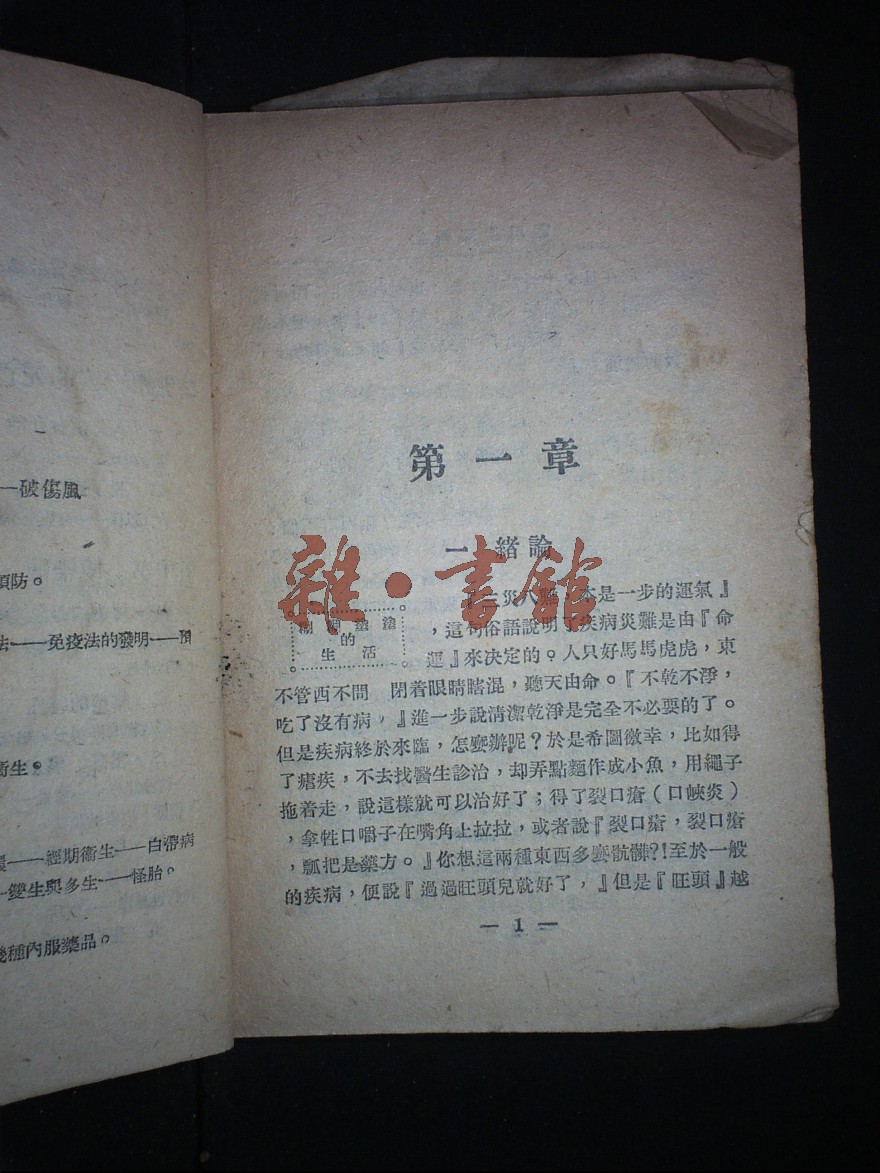 ——破傷風
預防。
法——免疫法的發明——預
衛生。
——經期衛生——白帶病
——雙生與多生——怪胎。
幾種內服藥品。
第一章
一 緒論
雜·書館
塗塗
的
生活
『三災八 本是一步的運氣』
，這句俗語說明了疾病災難是由『命
運』來決定的。人只好馬馬虎虎，東
不管西不問 閉着眼睛瞎混，聽天由命。『不乾不淨，
吃了沒有病，』進一步說清潔乾淨是完全不必要的了。
但是疾病終於來臨，怎麼辦呢？於是希圖徼幸，比如得
了瘧疾，不去找醫生診治，却弄點麵作成小魚，用繩子
拖着走，說這樣就可以治好了；得了裂口瘡（口峽炎）
，拿牲口嚼子在嘴角上拉拉，或者說『裂口瘡，裂口瘡
，瓢把是藥方。』你想這兩種東西多麼骯髒？！至於一般
的疾病，便說『過過旺頭兒就好了，』但是『旺頭』越
— 1 —